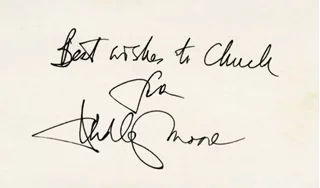 Best wishes to Chuck
from
Dudley Moore